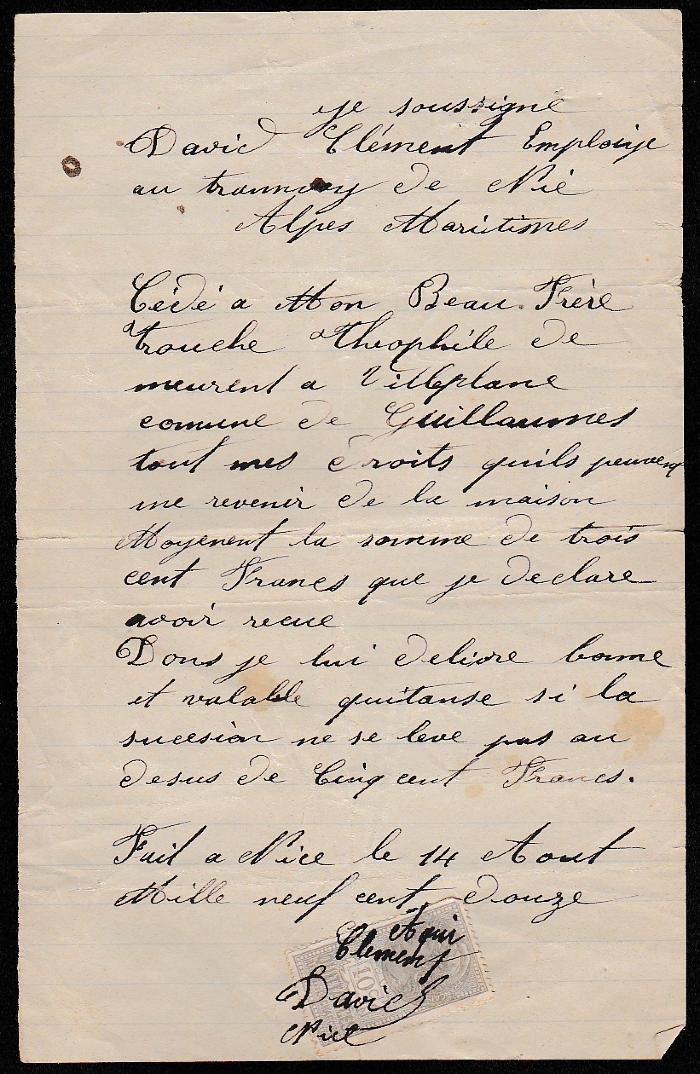 je soussigné
David Clément Employe
au tramway de Nice
Alpes Maritimes
Cédé a Mon Beau. Frère
trouche theophile de
meurent a Villeplane
comune de Guillaumes
tout mes droits quils peuvent
me revenir de la maison
Moyenent la somme de trois
cent Francs que je declare
avoir recue
Dons je lui delivre bonne
et valable quitanse si la
sucesion ne se leve pas au
desus de Cinq cent Francs.
Fait a Nice le 14 Aout
Mille neuf cent douze
Clement
10c
David
Nice